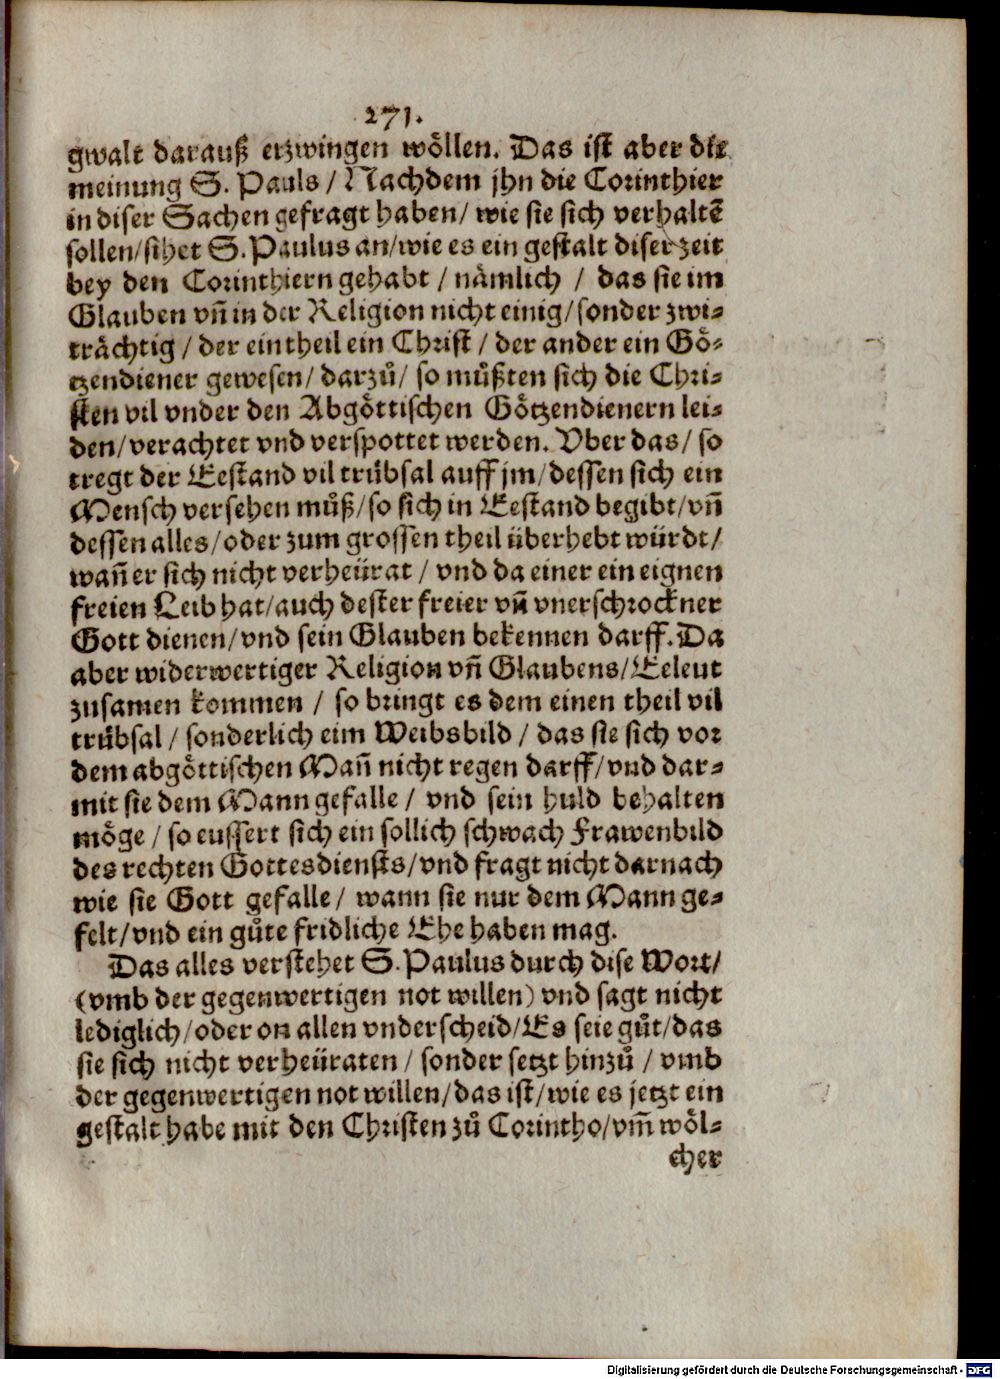 271.
gwalt darauß erzwingen wöllen. Das ist aber die
meinung S. Pauls / Nachdem jhn die Corinthier
in diser Sachen gefragt haben / wie sie sich verhaltē
sollen / sihet S. Paulus an / wie es ein gestalt diser zeit
bey den Corinthiern gehabt / nämlich / das sie im
Glauben vñ in der Religion nicht einig / sonder zwi-
trächtig / der ein theil ein Christ / der ander ein Gö-
tzendiener gewesen / darzů / so můßten sich die Chri-
sten vil vnder den Abgöttischen Götzendienern lei-
den / verachtet vnd verspottet werden. Vber das / so
tregt der Eestand vil trübsal auff jm / dessen sich ein
Mensch versehen můß / so sich in Eestand begibt / vñ
dessen alles / oder zum grossen theil überhebt würdt /
wañ er sich nicht verheürat / vnd da einer ein eignen
freien Leib hat / auch dester freier vñ vnerschrockner
Gott dienen / vnd sein Glauben bekennen darff. Da
aber widerwertiger Religion vñ Glaubens / Eeleut
zusamen kommen / so bringt es dem einen theil vil
trübsal / sonderlich eim Weibsbild / das sie sich vor
dem abgöttischen Mañ nicht regen darff / vnd dar-
mit sie dem Mann gefalle / vnd sein huld behalten
möge / so eussert sich ein sollich schwach Frawenbild
des rechten Gottesdiensts / vnd fragt nicht darnach
wie sie Gott gefalle / wann sie nur dem Mann ge-
felt / vnd ein gůte fridliche Ehe haben mag.
Das alles verstehet S. Paulus durch dise Wort /
(vmb der gegenwertigen not willen) vnd sagt nicht
lediglich / oder on allen vnderscheid / Es seie gůt / das
sie sich nicht verheüraten / sonder setzt hinzů / vmb
der gegenwertigen not willen / das ist / wie es jetzt ein
gestalt habe mit den Christen zů Corintho / vm̃ wöl-
cher
Digitalisierung gefördert durch die Deutsche Forschungsgemeinschaft - DFG